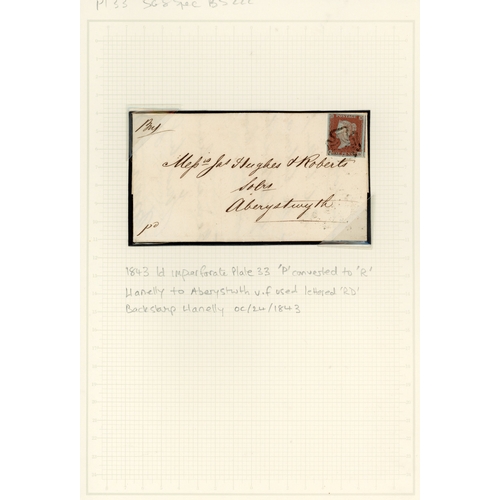 Pl 33 SG Spec BS22c
Messrs Jas Hughes & Roberts
Solrs
Aberystwyth
pd
1843 1d imperforate Plate 33 'P' converted to 'R'
Llanelly to Aberystwith v.f used lettered 'RD'
Backstamp Llanelly OC/24/1843